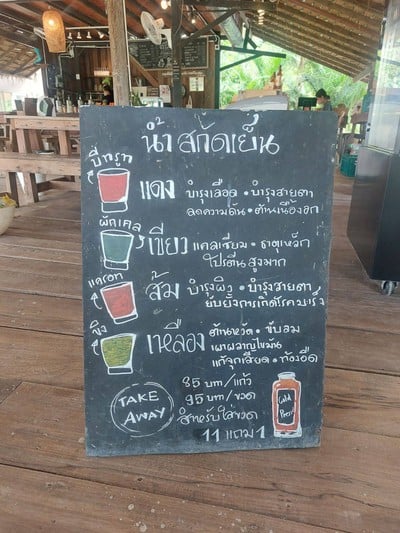 น้ำสกัดเย็น
บีทรูท
แดง บำรุงเลือด • บำรุงสายตา
ลดความดัน • ต้านเนื้องอก
ผักเคล
เขียว แคลเซียม • ธาตุเหล็ก
โปรตีนสูงมาก
แครอท
ส้ม บำรุงผิว • บำรุงสายตา
ยับยั้งการเกิดโรคมะเร็ง
ขิง
เหลือง ต้านหวัด • ขับลม
เผาผลาญไขมัน
แก้จุกเสียด • ท้องอืด
TAKE AWAY
85 บาท/แก้ว
95 บาท/ขวด
สำหรับใส่ขวด
11 แถม 1
Cold Press